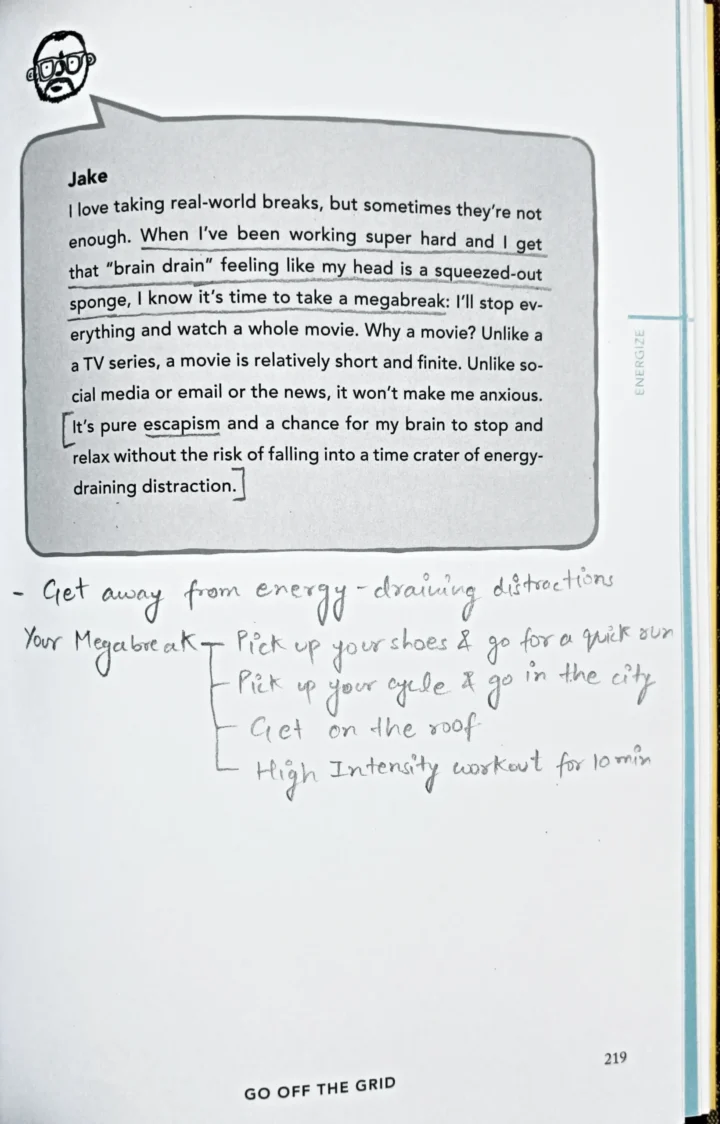 Jake
I love taking real-world breaks, but sometimes they're not
enough. When I've been working super hard and I get
that "brain drain" feeling like my head is a squeezed-out
sponge, I know it's time to take a megabreak: I'll stop ev-
erything and watch a whole movie. Why a movie? Unlike a
a TV series, a movie is relatively short and finite. Unlike so-
cial media or email or the news, it won't make me anxious.
It's pure escapism and a chance for my brain to stop and
relax without the risk of falling into a time crater of energy-
draining distraction.
ENERGIZE
- Get away from energy-draining distractions
Your Megabreak - Pick up your shoes & go for a quick run
- Pick up your cycle & go in the city
- Get on the roof
- High Intensity workout for 10 min
219
GO OFF THE GRID